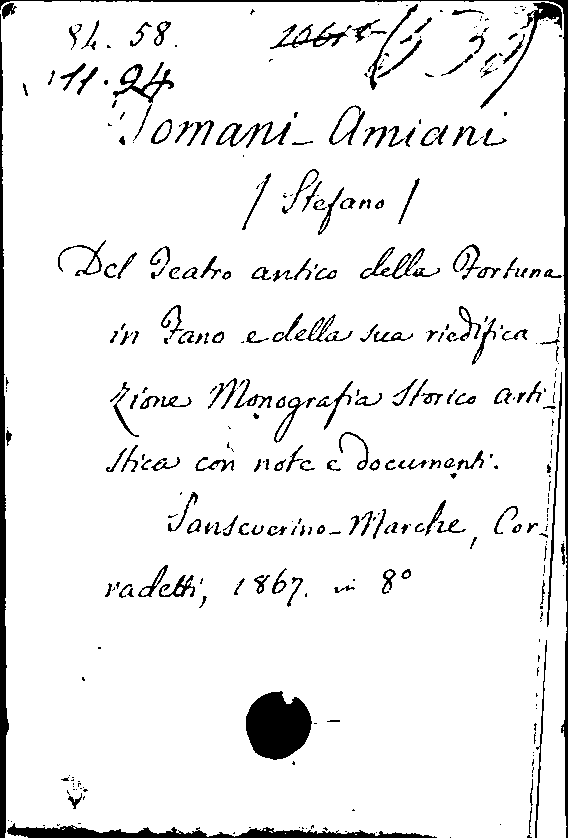 84. 58.
11. 94
Tomani-Amiani
/ Stefano /
Del Teatro antico della Fortuna
in Fano e della sua riedifica-
zione Monografia storico arti-
stica con note e documenti.
Sanseverino-Marche, Cor-
radetti, 1867. in 8º